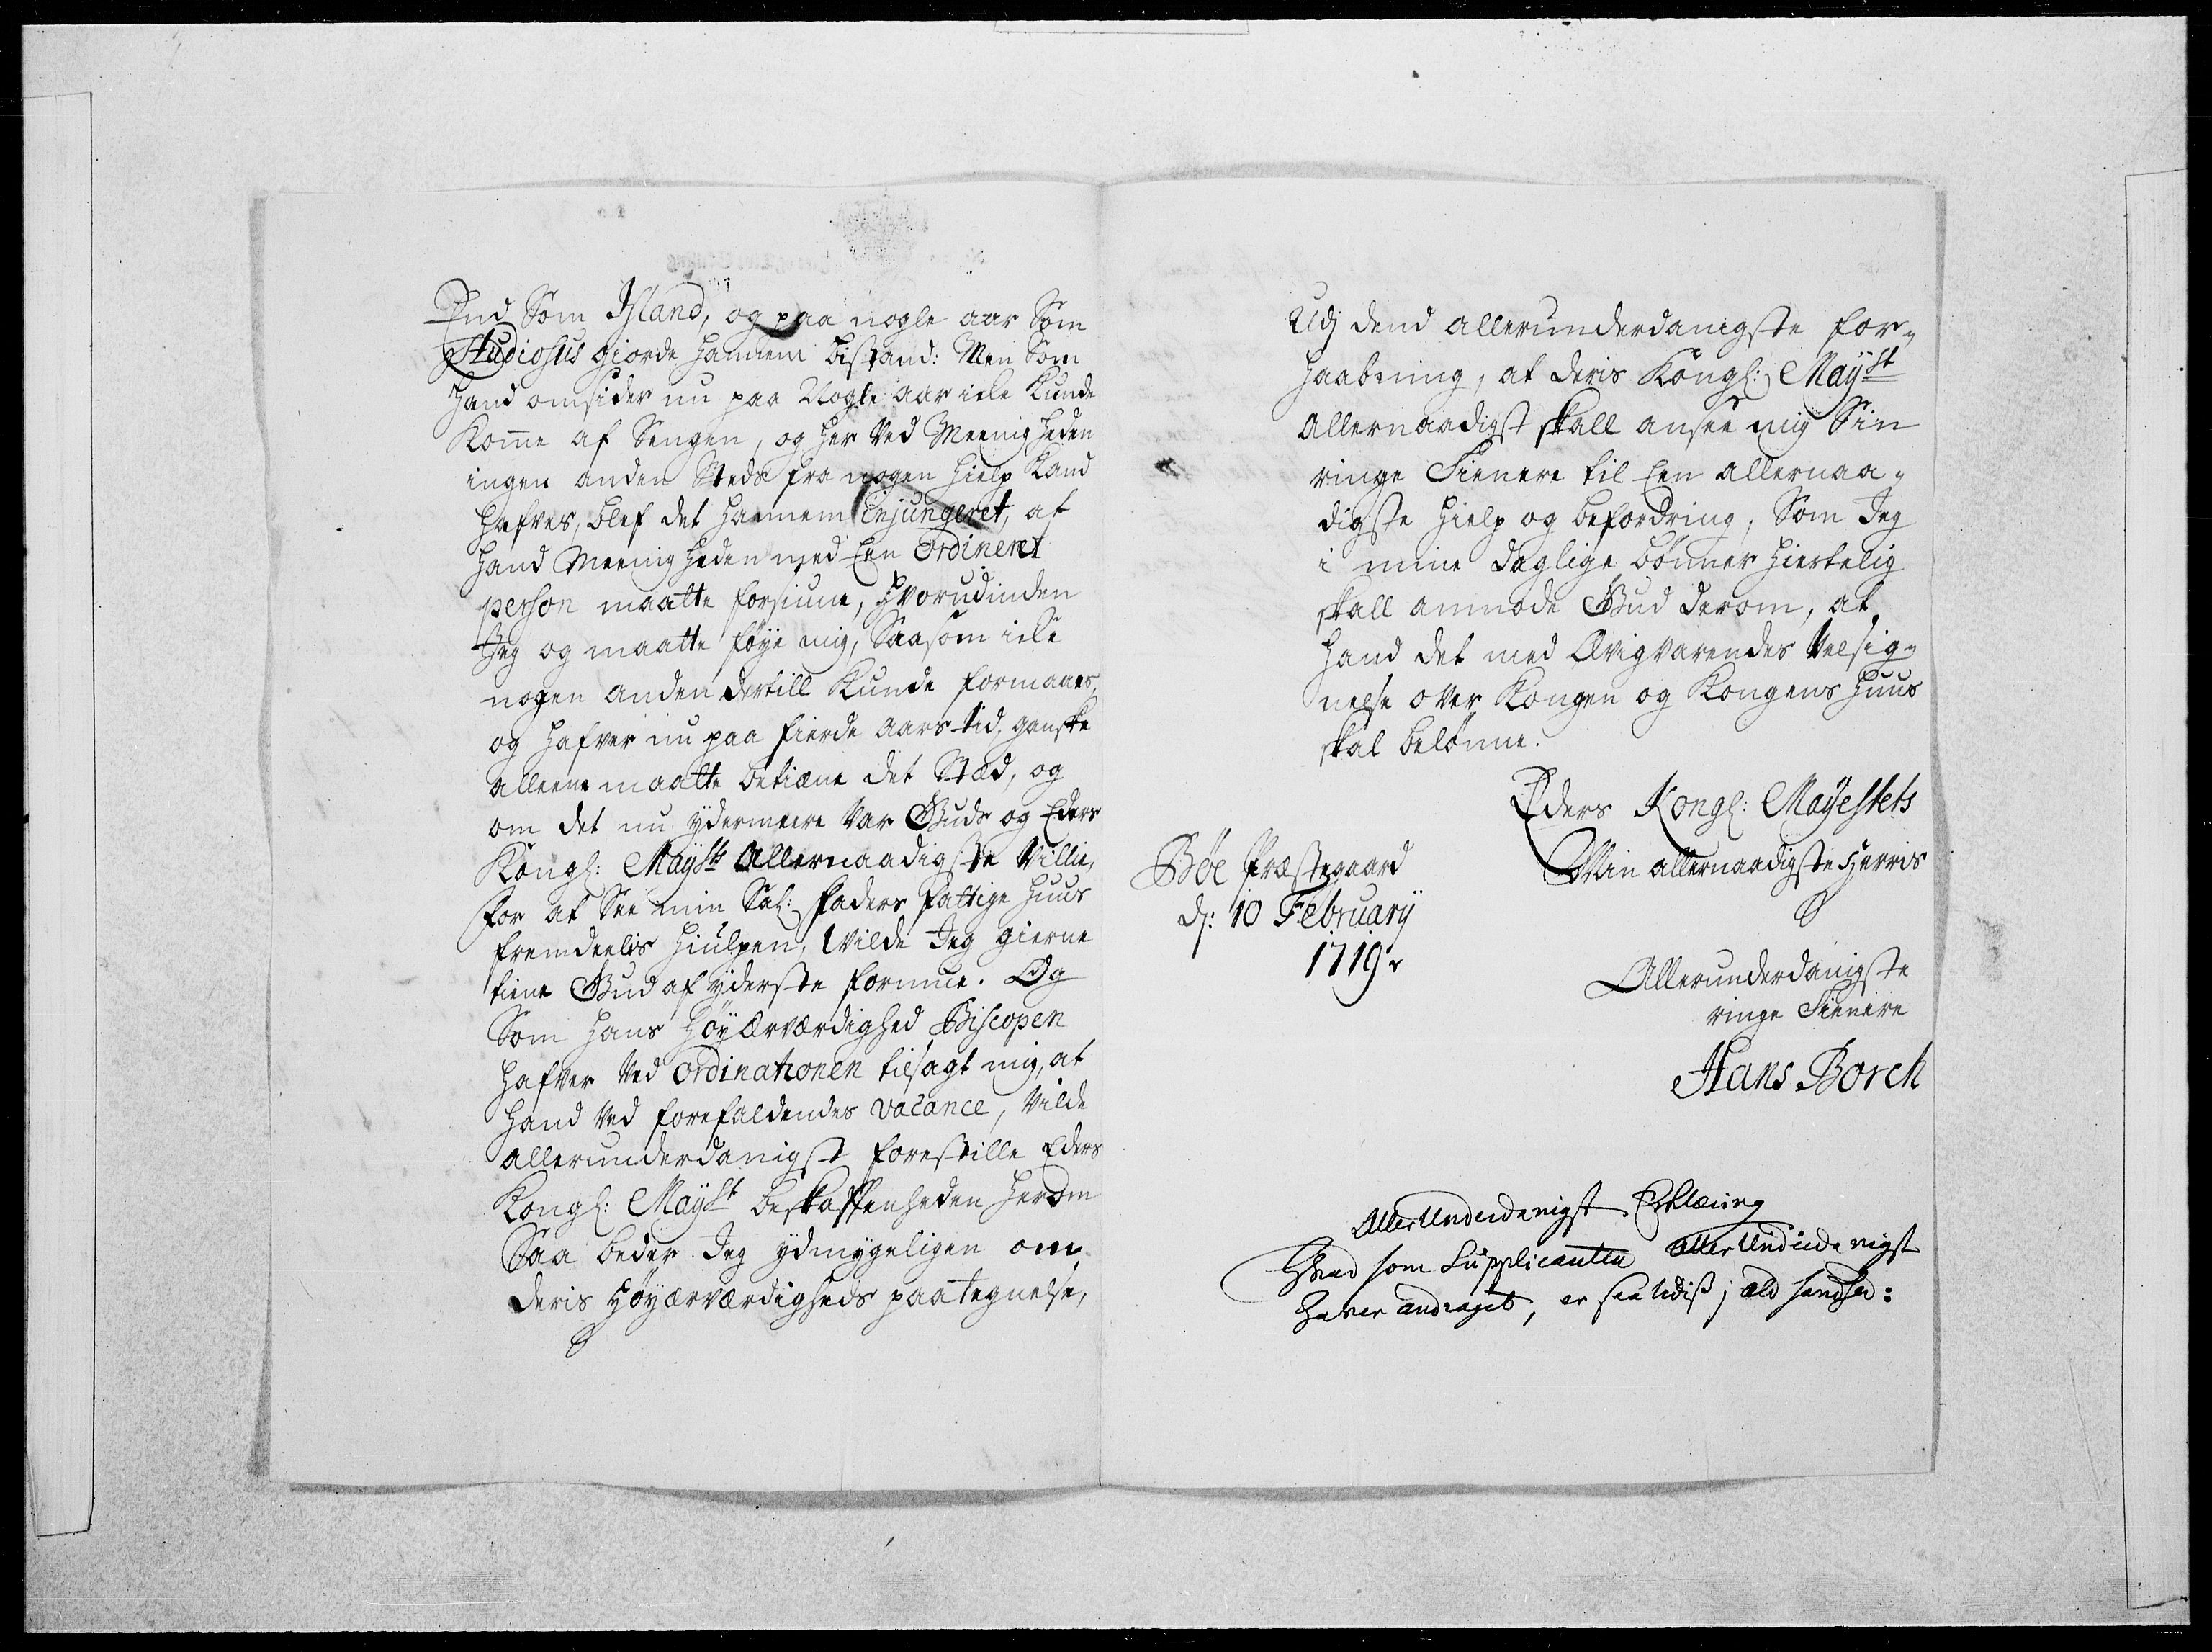 End Som Island, og paa nogle aar Som
Studiosus giorde hannem bistand: Men Som
Hand omsider nu paa Nogle aar icke Kunde
Komme af Sengen, og her ved Meenigheden
ingen anden Steds fra nogen hielp Kand
hafves, blef det hannem injungeret, at
hand Meenigheden med Een Ordineret
person maatte forsiune, Hvorudinden
Jeg og maatte føye mig, Saasom icke
nogen anden dertill Kunde formaaes,
og hafver nu paa fierde aars tid, ganske
alleene maatte betiæne det Stæd, og
om det nu ydermeere var Guds og Eders
Kongl: Maysts Allernaadigste Villie,
for at See min Sal: Faders fattige huus
fremdeelis hiulpen, Wilde Jeg gierne
tiene Gud af yderste formue. Og
Som hans HøyÆrværdighed Biscopen
hafver ved Ordinationen tilsagt mig, at
Hand ved forefaldendes vacance, vilde
allerunderdanigst forestille Eders
Kongl: Mayst beskaffenheden herom
Saa beder Jeg ydmygeligen om
deris Høyærværdigheds paategnelse,
Udj dend allerunderdanigste for-
haabning, at deris Kongl: Mayst
allernaadigst skall ansee mig Sin
ringe Tienere til Een allernaa-
digste hielp og befordring, Som Jeg
i mine daglige bønner hiertelig
skall anmode Gud derom, at
Hand det med Ævigvarendes Velsig-
nelse over Kongen og Kongens Huus
skal belønne.
Eders Kongl: Mayestets
Min allernaadigste Herris
Bøe Præstegaard
d: 10 February
1719
Allerunderdanigste
ringe Tienere
Hans Borch
AllerUnderdanigst Erklæring
Hvad som Supplicanten allerUnderdanigst
haver andraget, er saalediss j ald sandhed: